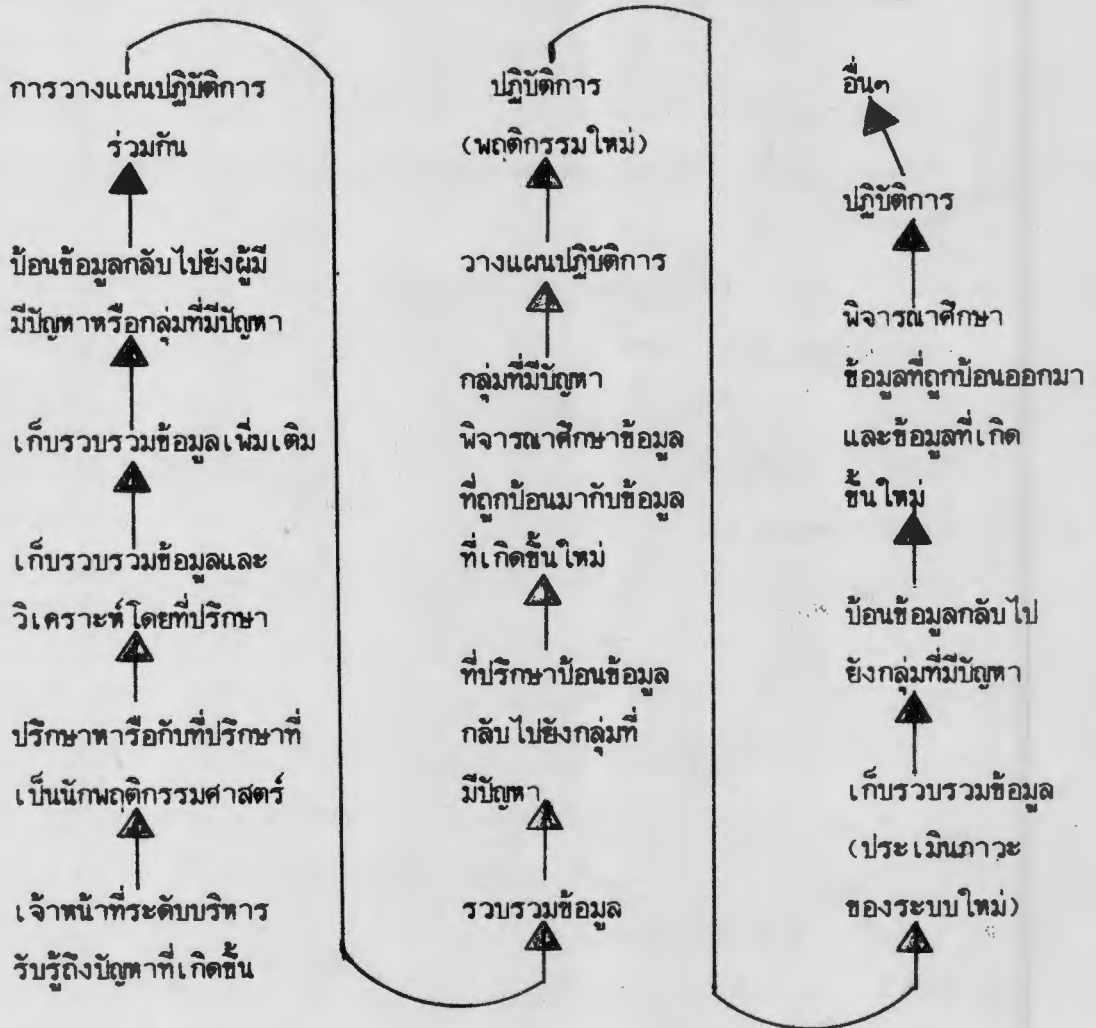 การวางแผนปฏิบัติการ
ร่วมกัน
ป้อนข้อมูลกลับไปยังผู้มี
มีปัญหาหรือกลุ่มที่มีปัญหา
เก็บรวบรวมข้อมูลเพิ่มเติม
เก็บรวบรวมข้อมูลและ
วิเคราะห์โดยที่ปรึกษา
ปรึกษาหารือกับที่ปรึกษาที่
เป็นนักพฤติกรรมศาสตร์
เจ้าหน้าที่ระดับบริหาร
รับรู้ถึงปัญหาที่เกิดขึ้น
ปฏิบัติการ
(พฤติกรรมใหม่)
วางแผนปฏิบัติการ
กลุ่มที่มีปัญหา
พิจารณาศึกษาข้อมูล
ที่ถูกป้อนมากับข้อมูล
ที่เกิดขึ้นใหม่
ที่ปรึกษาป้อนข้อมูล
กลับไปยังกลุ่มที่
มีปัญหา
รวบรวมข้อมูล
อื่นๆ
ปฏิบัติการ
พิจารณาศึกษา
ข้อมูลที่ถูกป้อนออกมา
และข้อมูลที่เกิด
ขึ้นใหม่
ป้อนข้อมูลกลับไป
ยังกลุ่มที่มีปัญหา
เก็บรวบรวมข้อมูล
(ประเมินภาวะ
ของระบบใหม่)